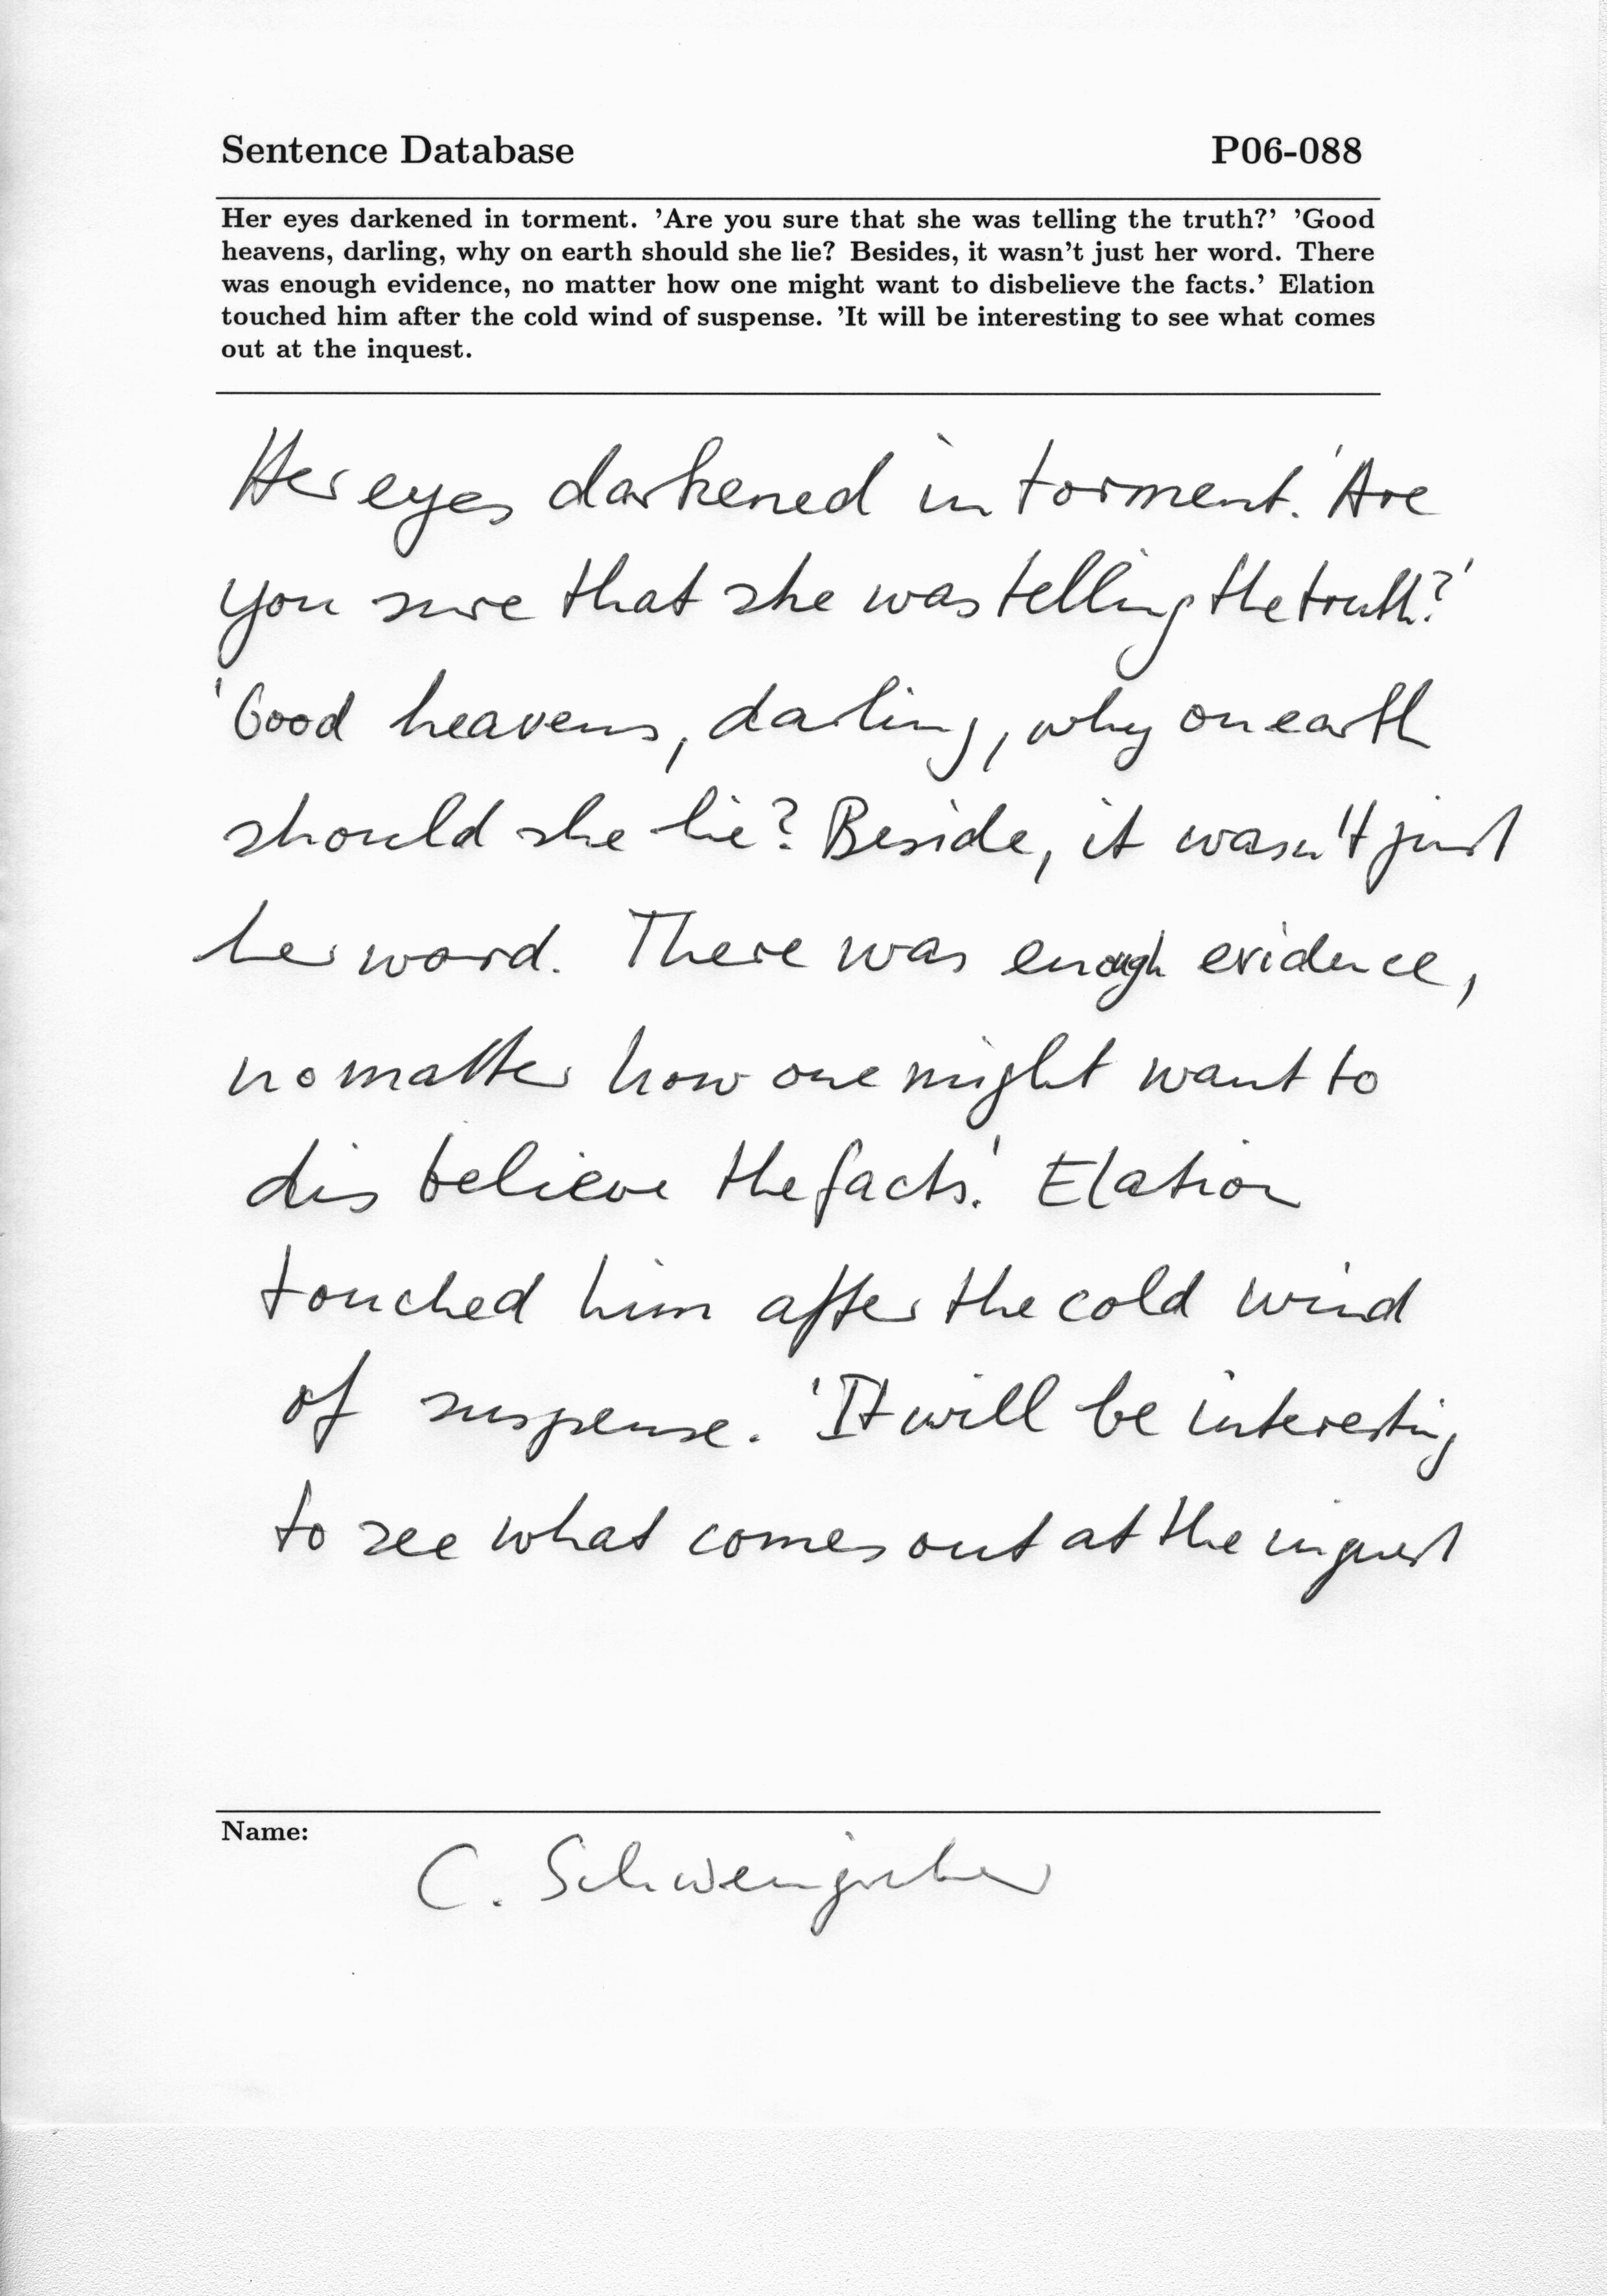 Sentence Database P06-088
Her eyes darkened in torment. 'Are you sure that she was telling the truth?' 'Good
heavens, darling, why on earth should she lie? Besides, it wasn't just her word. There
was enough evidence, no matter how one might want to disbelieve the facts.' Elation
touched him after the cold wind of suspense. 'It will be interesting to see what comes
out at the inquest.
Her eyes darkened in torment. 'Are
you sure that she was telling the truth?'
'Good heavens, darling, why on earth
should she lie? Beside, it wasn't just
her word. There was enough evidence,
no matter how one might want to
dis believe the facts.' Elation
touched him after the cold wind
of suspense. 'It will be interesting
to see what comes out at the inquest
Name:
C.